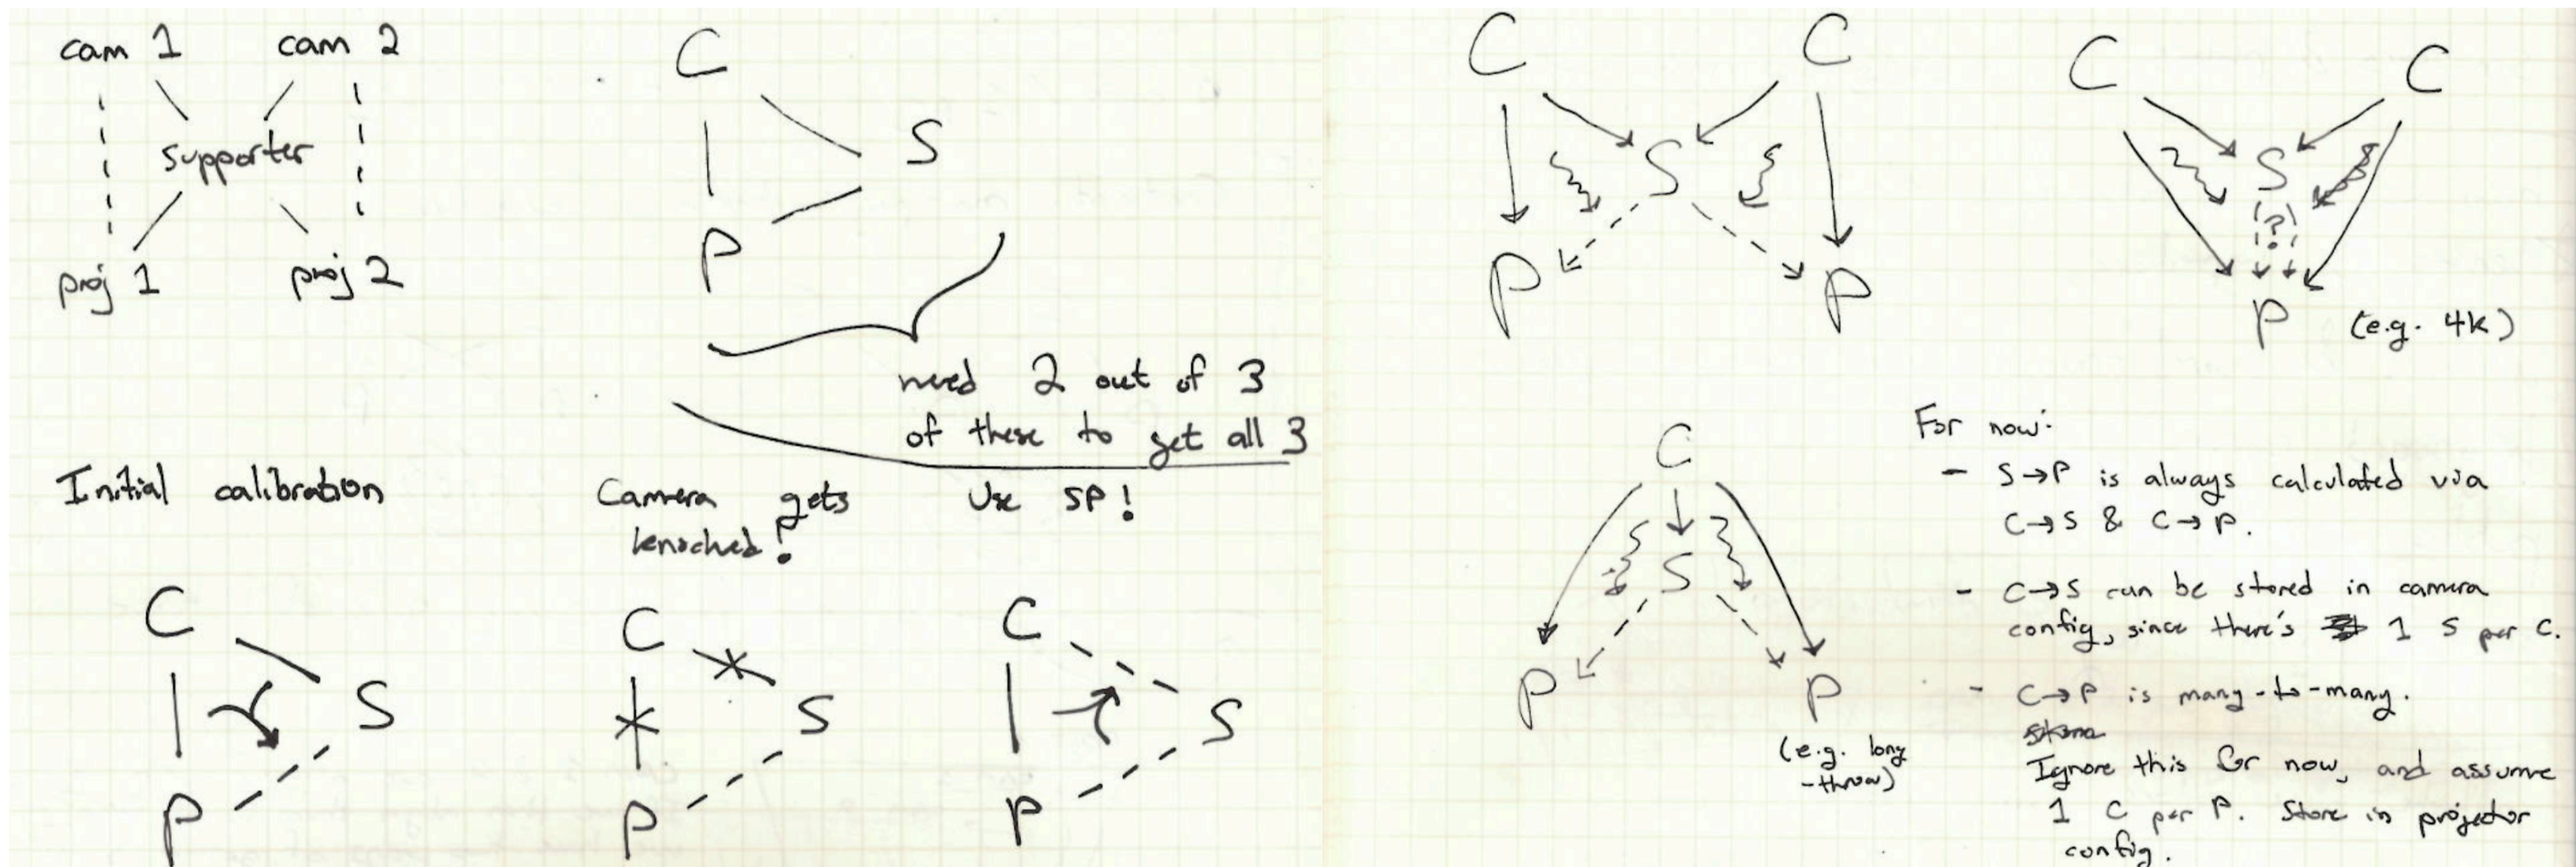 cam 1 cam 2
supporter
proj 1 proj 2
C
S
P
need 2 out of 3
of these to get all 3
Initial calibration
Camera gets
knocked!
Use SP!
C
S
P
C
S
P
C
S
P
C C
S
P P
C C
S
?
P (e.g. 4K)
C
S
P P
(e.g. long
-throw)
For now:
- S→P is always calculated via
C→S & C→P.
- C→S can be stored in camera
config, since there's 1 S per C.
- C→P is many-to-many.
Ignore this for now, and assume
1 C per P. Store in projector
config.